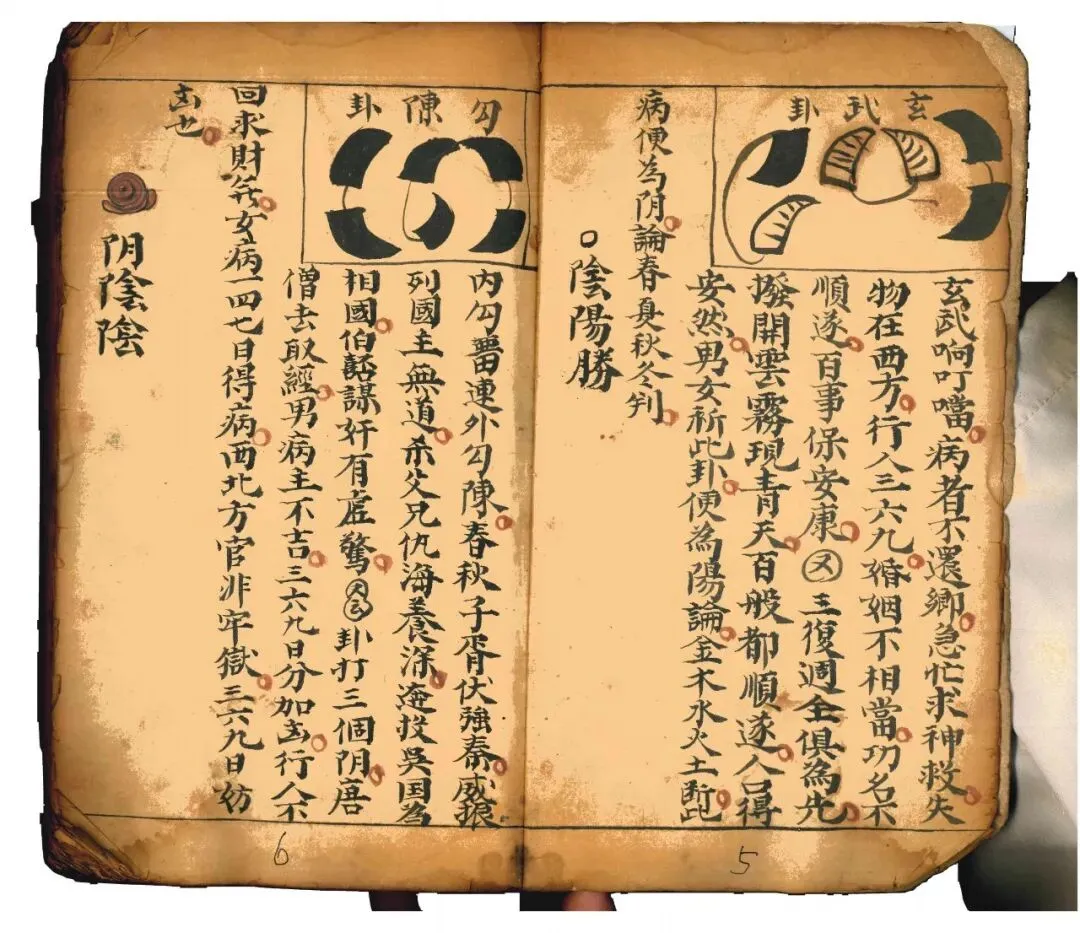 玄武卦
玄武响叮噹病者不還鄉急忙求神救失
物在西方行人三六九婚姻不相當功名不
順遂百事保安康又三復週全俱為先
撥開雲霧現青天百般都順遂人口得
安然男女祈此卦便為陽論金木水火土斷
病便為阴論春夏秋冬判
陰陽勝
5
勾陳卦
內勾連外勾陳春秋子胥伏強秦威振
列國主無道杀父兄仇海養深逃投吳国為
相國伯嚭謀奸有虛驚卦打三個阴唐
僧去取經男病主不吉三六九日分加凶行人不
回求財女病一四七日得病西北方官非牢獄三六九日妨
凶也
阴陰陰
6